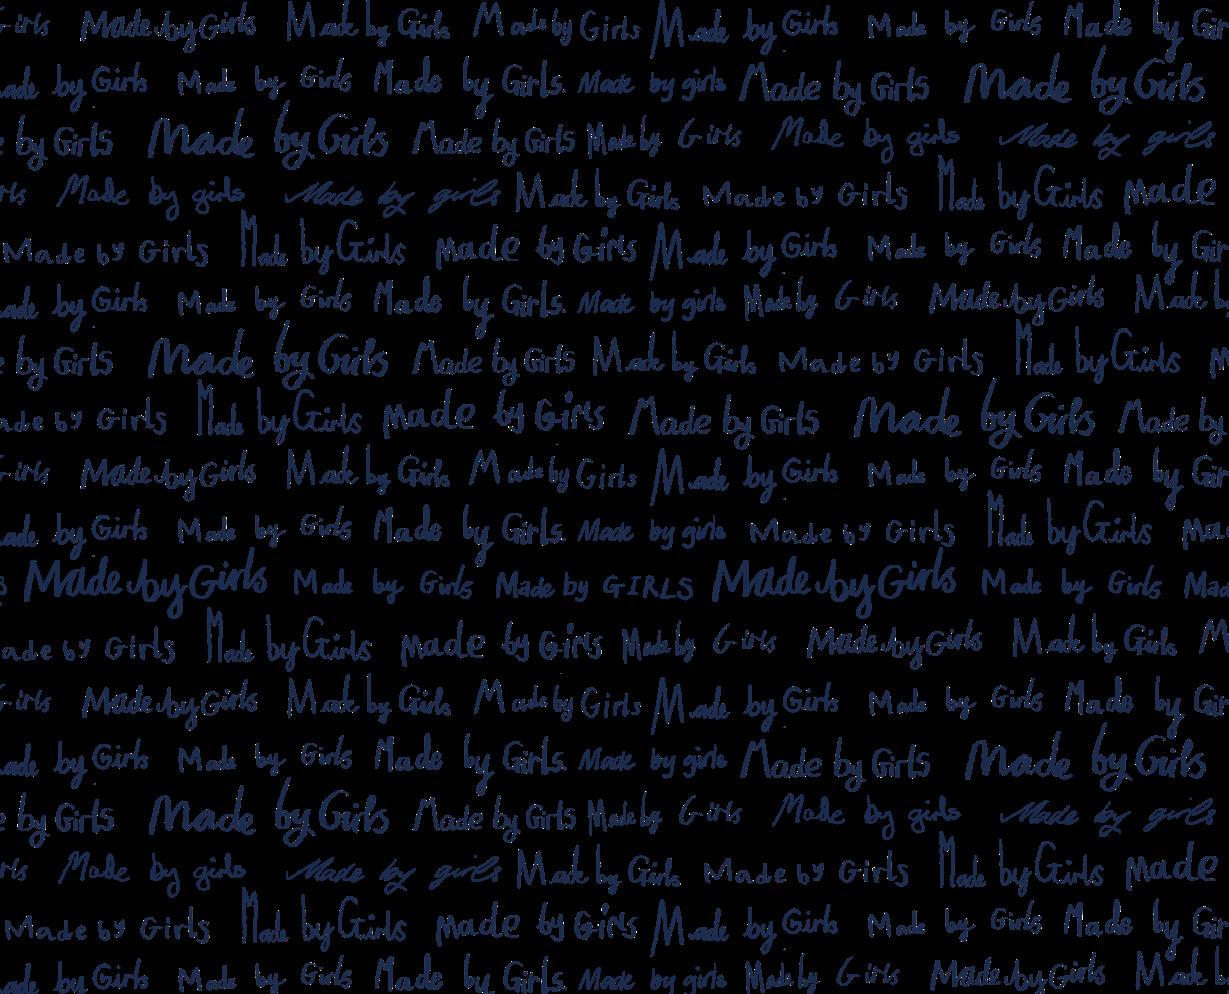 Girls Made by Girls Made by Girls Made by Girls Made by Girls Made by Girls Made by Gir
ade by Girls Made by Girls Made by Girls. Made by girls Made by Girls Made by Girls
e by Girls Made by Girls Made by Girls Made by Girls Made by girls Made by girls
rls Made by girls Made by girls Made by Girls Made by Girls Made by Girls Made
Made by Girls Made by Girls Made by Girls Made by Girls Made by Girls Made by Gir
ade by Girls Made by Girls Made by Girls. Made by girls Made by Girls Made by Girls Made b
e by Girls Made by Girls Made by Girls Made by Girls Made by Girls Made by Girls M
ade by Girls Made by Girls Made by Girls Made by Girls Made by Girls Made by
Girls Made by Girls Made by Girls Made by Girls Made by Girls Made by Girls Made by Gir
ade by Girls Made by Girls Made by Girls. Made by girls Made by Girls Made by Girls Mad
s Made by Girls Made by Girls Made by GIRLS Made by Girls Made by Girls Mad
ade by Girls Made by Girls Made by Girls Made by Girls Made by Girls Made by Girls M
Girls Made by Girls Made by Girls Made by Girls Made by Girls Made by Girls Made by Gir
ade by Girls Made by Girls Made by Girls. Made by girls Made by Girls Made by Girls
e by Girls Made by Girls Made by Girls Made by Girls Made by girls Made by girls
rls Made by girls Made by girls Made by Girls Made by Girls Made by Girls Made
Made by Girls Made by Girls Made by Girls Made by Girls Made by Girls Made by Gir
ade by Girls Made by Girls Made by Girls. Made by girls Made by Girls Made by Girls Made b